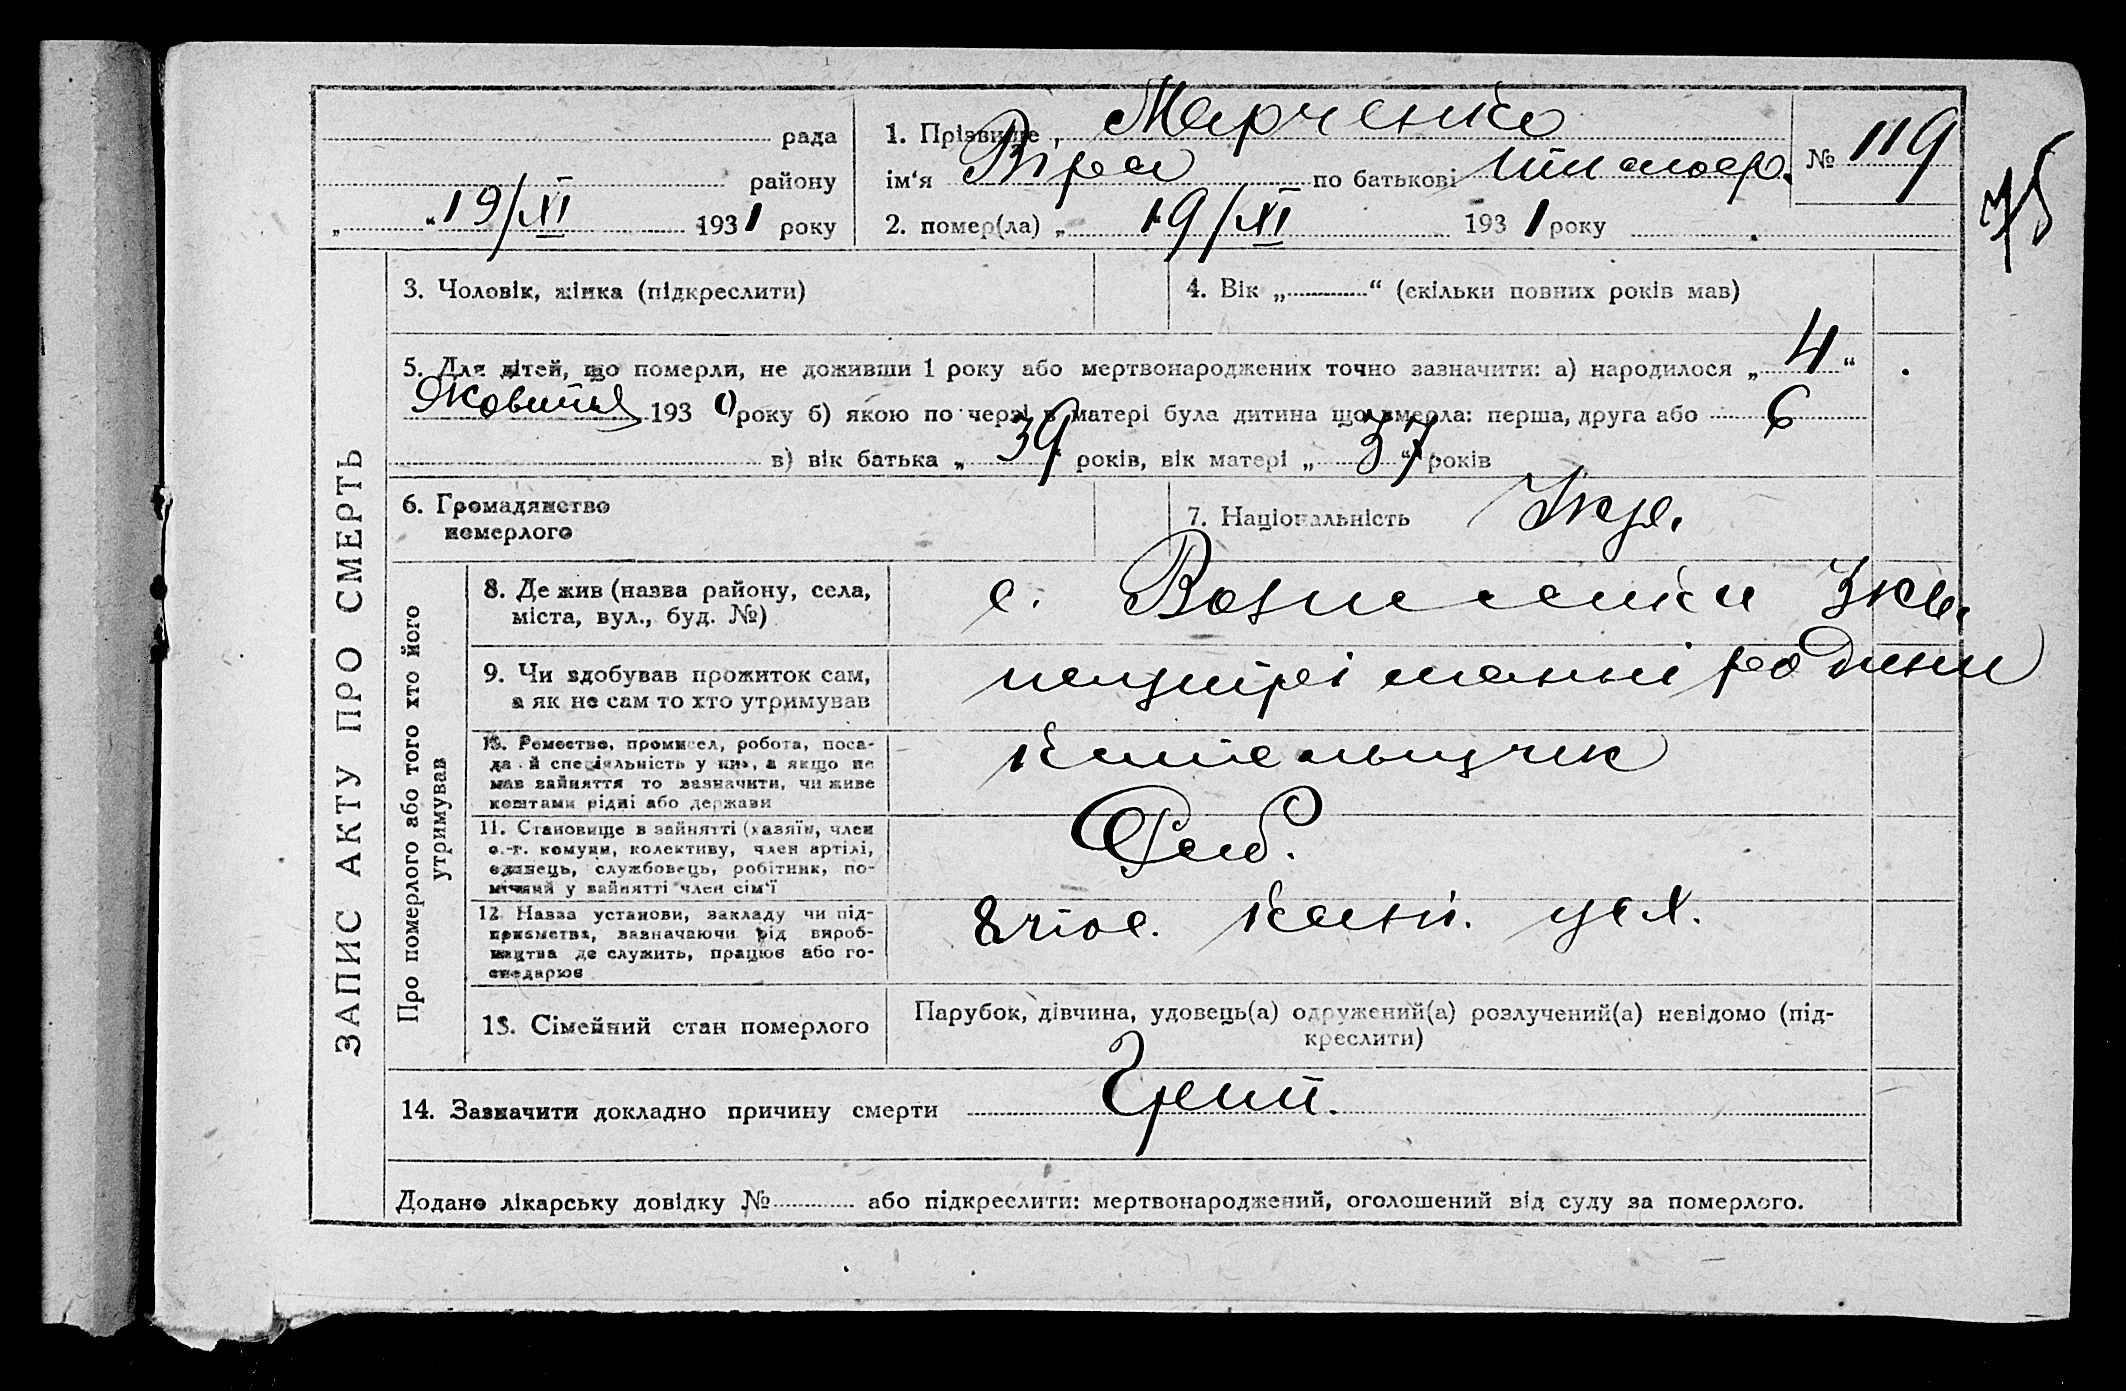 рада
1. Прізвище Марченко
№ 119
району
ім'я Віра по батькові
75
„ “ 19/XI 1931 року
2. помер(ла) „ 19/XI 1931 року
3. Чоловік, жінка (підкреслити)
4. Вік „ “ (скільки повних років мав)
5. Для дітей, що померли, не доживши 1 року або мертвонароджених точно зазначити: а) народилося „ 4 “
Жовтня 1930 року б) якою по черзі в матері була дитина що вмерла: перша, друга або 6
в) вік батька „ 39 “ років, вік матері „ 37 “ років
6. Громадянство
померлого
7. Національність Укр.
ЗАПИС АКТУ ПРО СМЕРТЬ
Про померлого або того хто його
утримував
8. Де жив (назва району, села,
міста, вул., буд. №)
с. Вознесенка
9. Чи здобував прожиток сам,
а як не сам то хто утримував
на утріманні родини
10. Ремество, промисел, робота, поса-
да й спеціяльність у них, а якщо не
мав зайняття то зазначити, чи живе
коштами рідні або держави
11. Становище в зайнятті (хазяїн, член
с.-г. комуни, колективу, член артілі,
одинець, службовець, робітник, по-
мічний у зайнятті член сім'ї
Роб.
12. Назва установи, закладу чи під-
приємства, зазначаючи рід вироб-
ництва де служить, працює або го-
сподарює
13. Сімейний стан померлого
Парубок, дівчина, удовець(а) одружений(а) розлучений(а) невідомо (під-
креслити)
14. Зазначити докладно причину смерти Грип.
Додано лікарську довідку № або підкреслити: мертвонароджений, оголошений від суду за померлого.